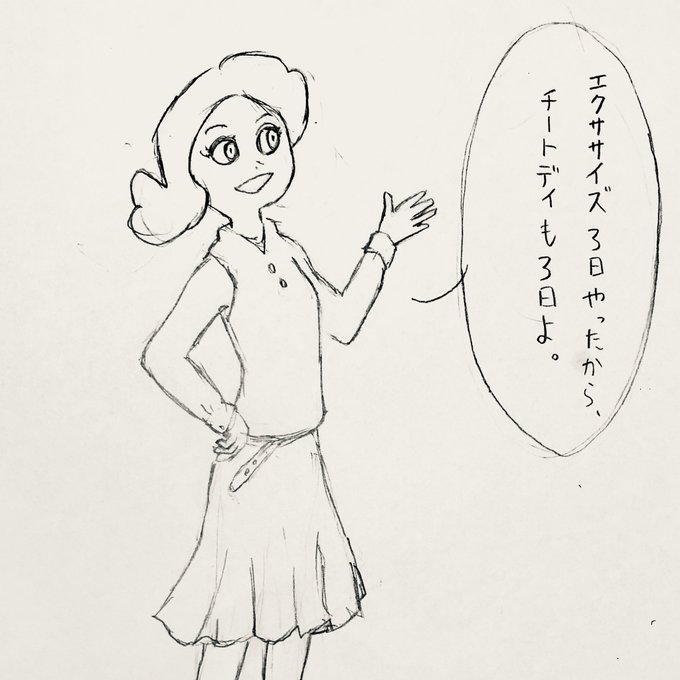 エクササイズ3日やったから、
チートデイも3日よ。